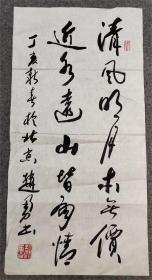 清风明月本无價
近水遠山皆有情
丁亥新春於北京趙勇書